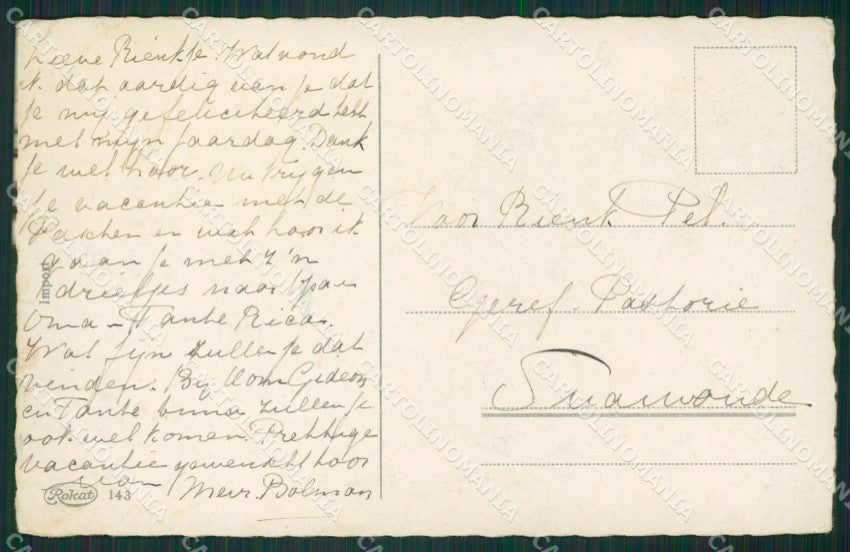 Lieve Rienkje. Wat vond
ik dat aardig van je dat
je mij gefeliciteerd hebt
met mijn jaardag. Dank
je wel hoor. Nu krijgen
we vacantie met de
Paschen en wat hoor ik
gaan je met z'n
drietjes naar Opa en
Oma - Tante Rica.
Wat fijn zullen je dat
vinden. Bij Oom Gideon
en Tante zullen je
ook wel komen. Prettige
vacantie gewenscht hoor
van Mevr. Bolman
Import
Rokat 143
Voor Rienk Pel.
Geref. Pastorie
CARTOLINOMANIA